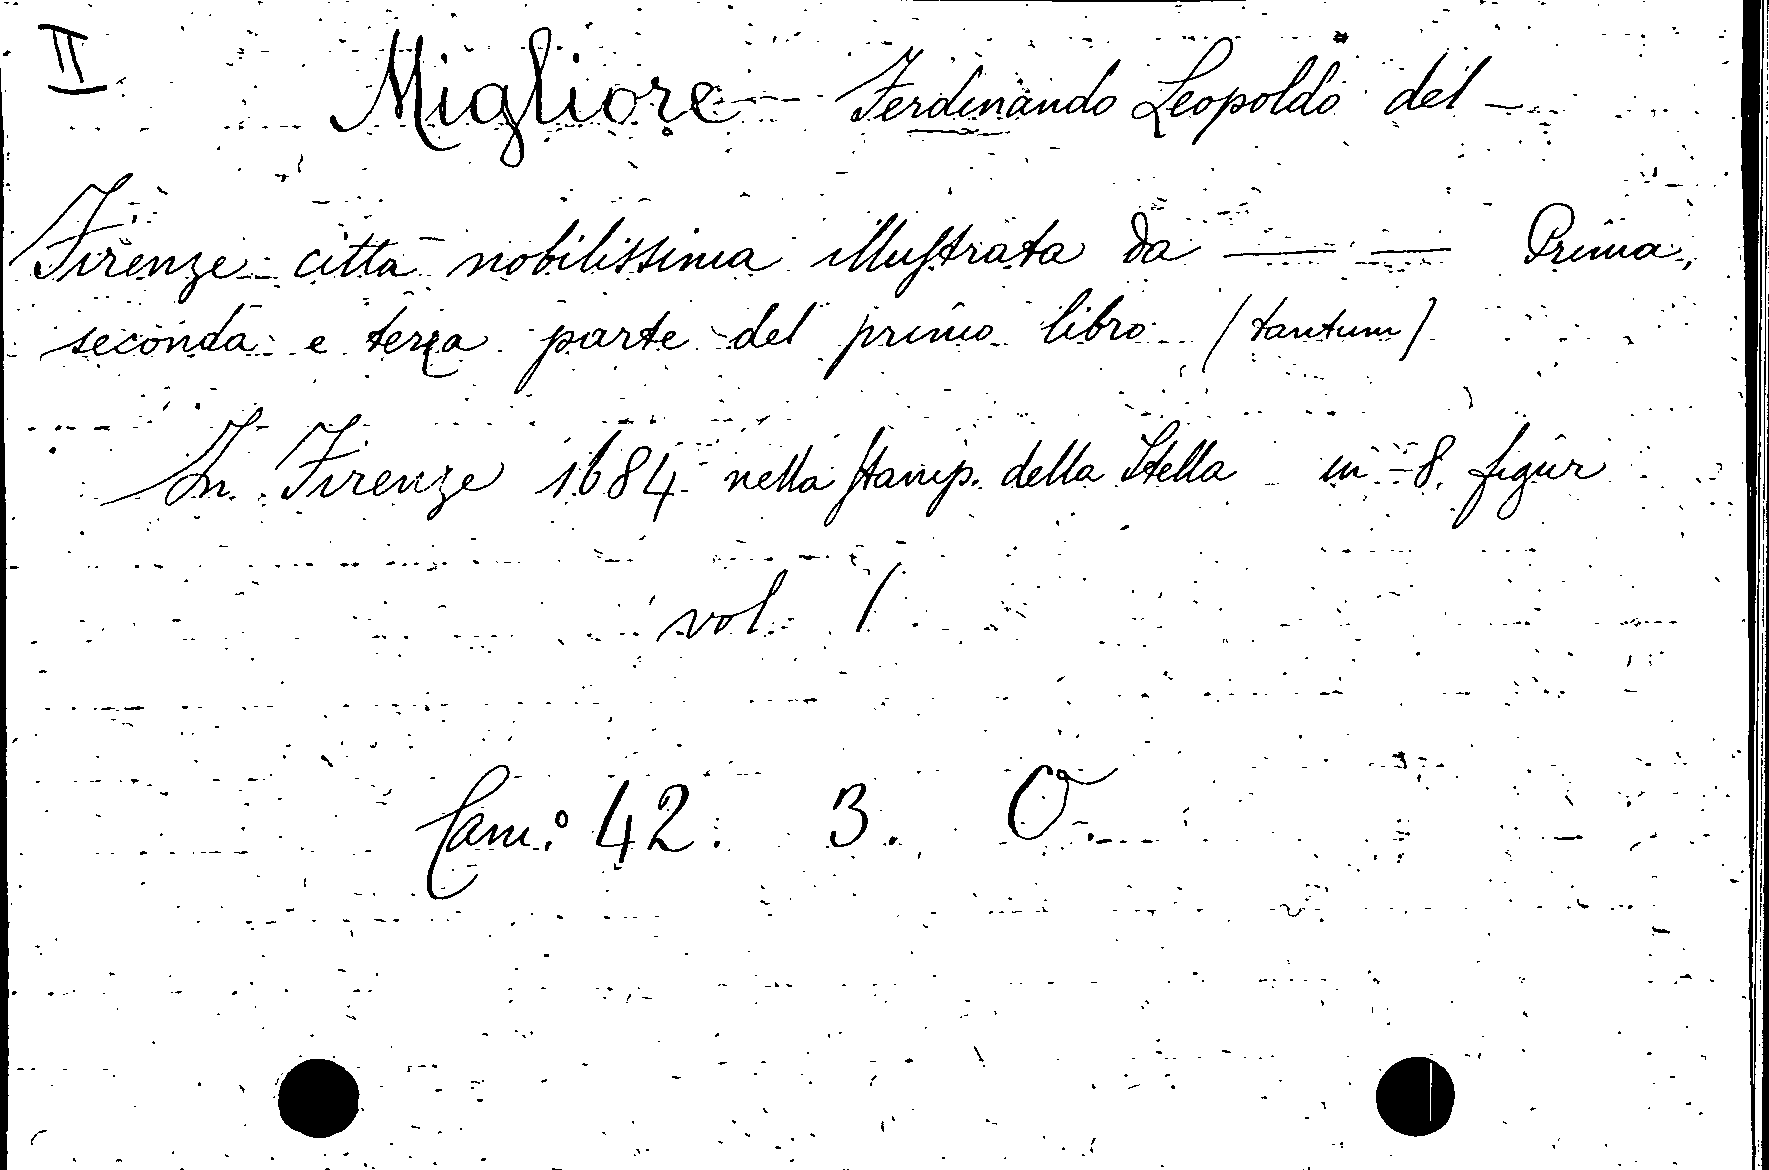 II
Migliore Ferdinando Leopoldo del -
Firenze città nobilissima illustrata da — — Prima,
seconda e terza parte del primo libro (tantum)
In Firenze 1684 nella Stamp. della Stella in -8. figur
vol. 1
Cam.º 42. 3. O.